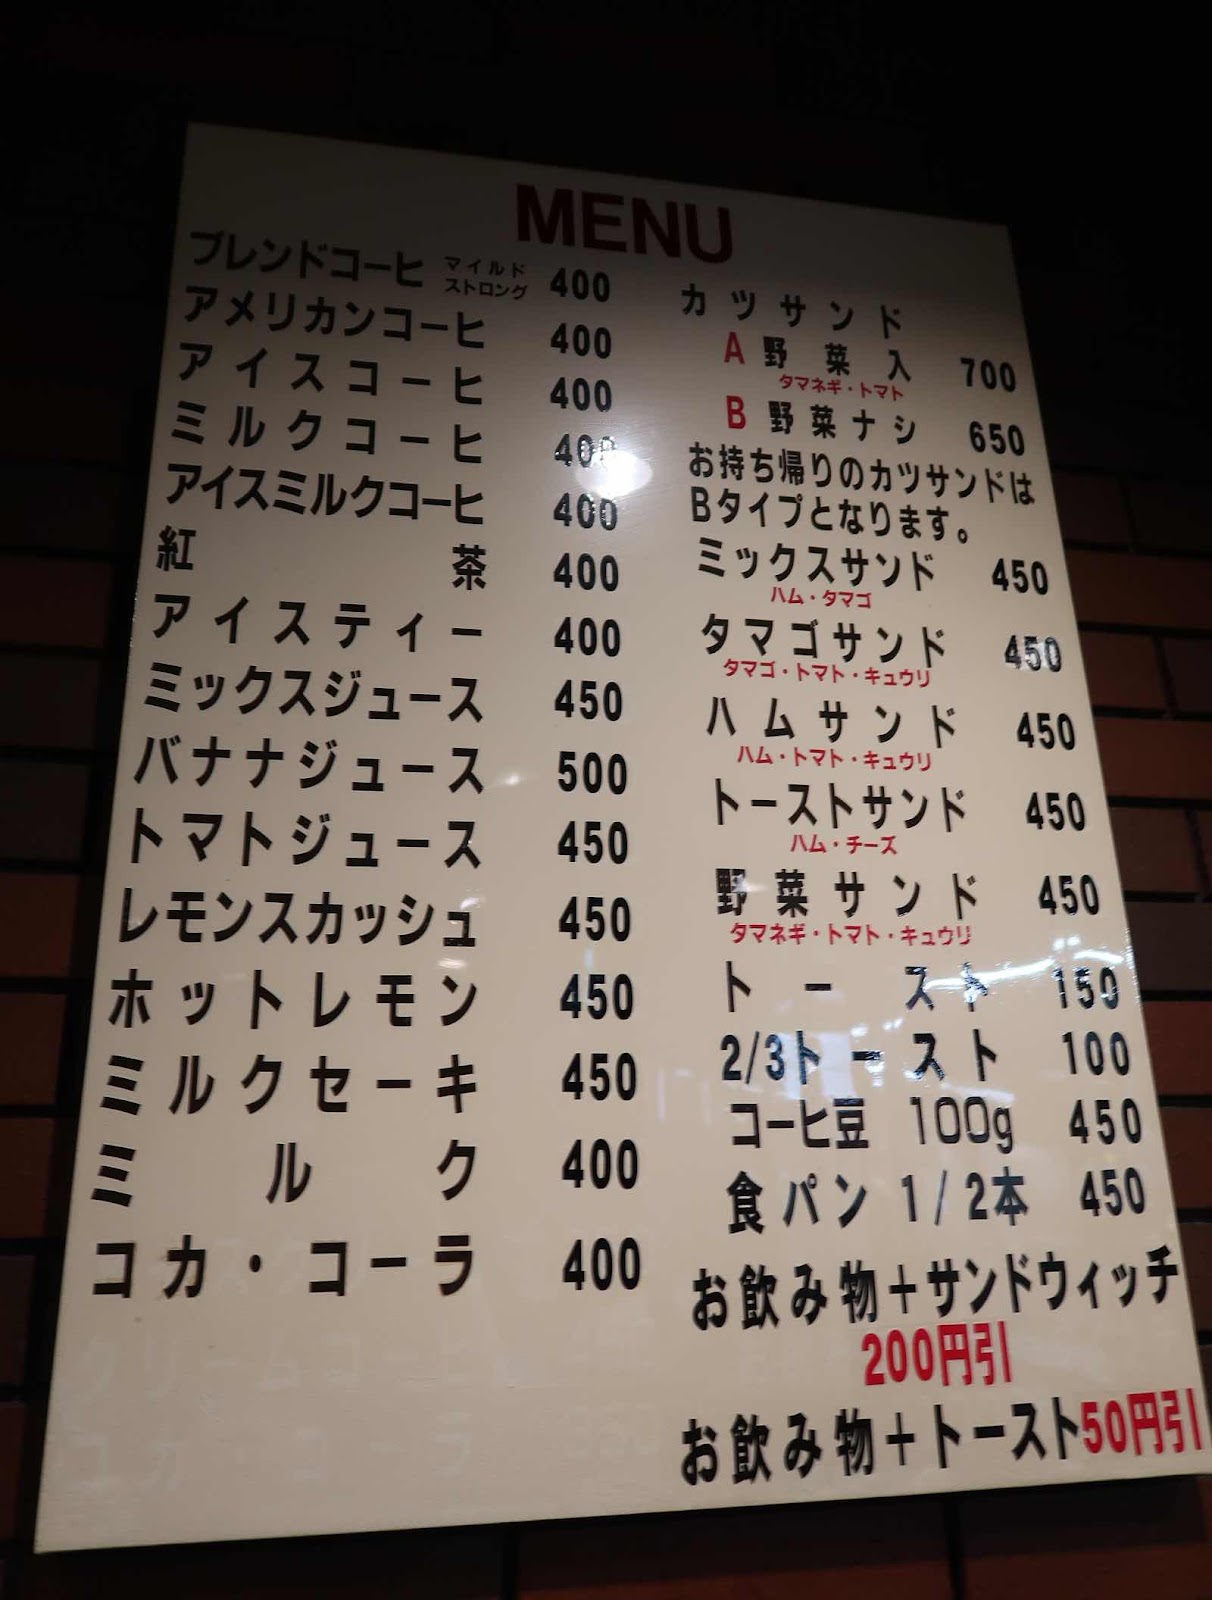 MENU
ブレンドコーヒ マイルド ストロング 400
アメリカンコーヒ 400
アイスコーヒ 400
ミルクコーヒ 400
アイスミルクコーヒ 400
紅茶 400
アイスティー 400
ミックスジュース 450
バナナジュース 500
トマトジュース 450
レモンスカッシュ 450
ホットレモン 450
ミルクセーキ 450
ミルク 400
コカ・コーラ 400
カツサンド
A 野菜入 700
タマネギ・トマト
B 野菜ナシ 650
お持ち帰りのカツサンドは
Bタイプとなります。
ミックスサンド 450
ハム・タマゴ
タマゴサンド 450
タマゴ・トマト・キュウリ
ハムサンド 450
ハム・トマト・キュウリ
トーストサンド 450
ハム・チーズ
野菜サンド 450
タマネギ・トマト・キュウリ
トースト 150
2/3トースト 100
コーヒ豆 100g 450
食パン 1/2本 450
お飲み物+サンドウィッチ
200円引
お飲み物+トースト50円引